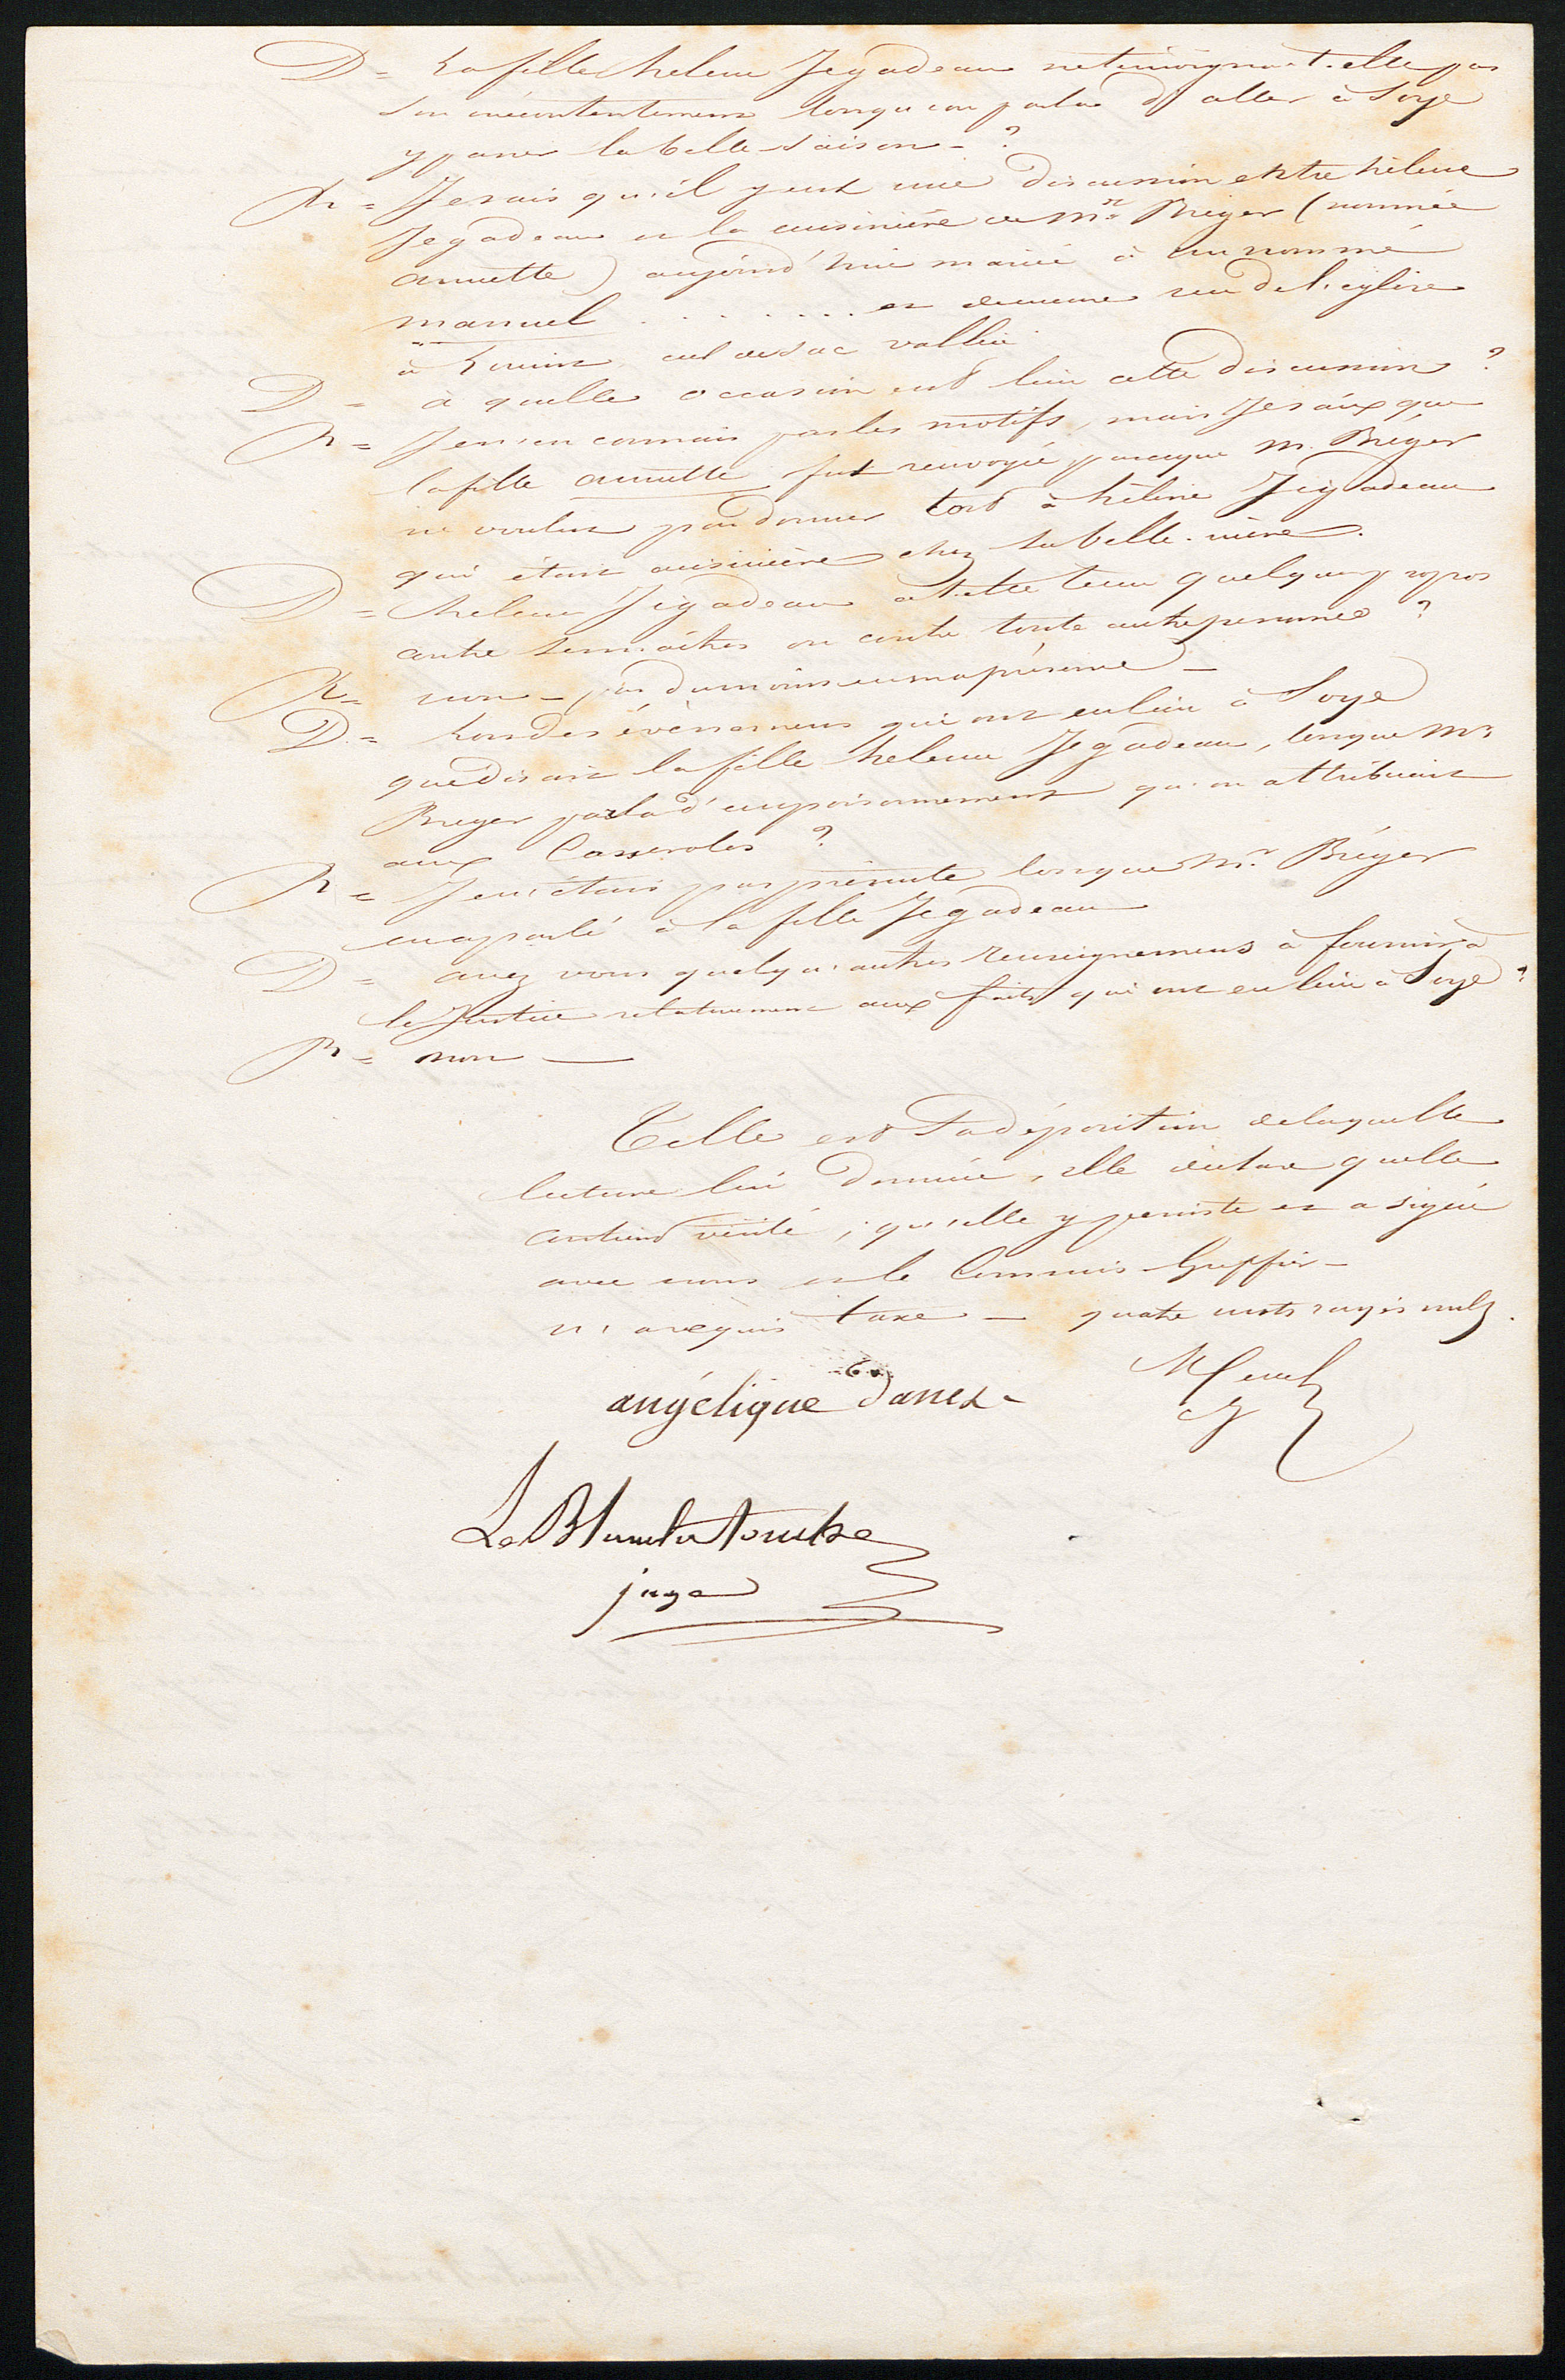 D = La fille helene Jegadeau ne témoigna-t-elle pas
son mécontentement lorsqu'on parla d'aller à Soye
y passer la belle saison - ?
R = Je sais qu'il y eut une discussion entre hélène
Jegadeau et la cuisinière de Mr Breger (nommée
annette) aujourd'hui mariée à un nommé
manuel . . . . . . . et demeure rue de l'église
à Lorient cul de sac
D = à quelle occasion eut lieu cette discussion ?
R = Je n'en connais pas les motifs, mais Je sais que
la fille annette fut renvoyée parceque M. Bréger
ne voulut pas donner tort à hélène Jegadeau
qui était cuisinière chez sa belle-mère.
D = helene Jegadeau a t'elle tenu quelques propos
contre ses maîtres ou contre toute autre personne ?
R = non - pas du moins en ma présence -
D. = Lors des évènemens qui ont eu lieu à Soye
que disait la fille helene Jegadeau, lorsque Mr
Breger parla d'empoisonnement qu'on attribuait
aux Casseroles ?
R = Je n'étais pas présente lorsque Mr. Bréger
en a parlé à la fille Jegadeau
D = avez vous quelqu'autres renseignemens à fournir à
la Justice relativement aux faits qui ont eu lieu à Soye ?
R = non —
Telle est sa déposition de laquelle
lecture lui donnée, elle déclare quelle
contient vérité, qu'elle y persiste et a signé
avec nous et le Commis Greffier -
n'a requis taxe — quatre mots rayés nuls.
angélique danet
Le
juge